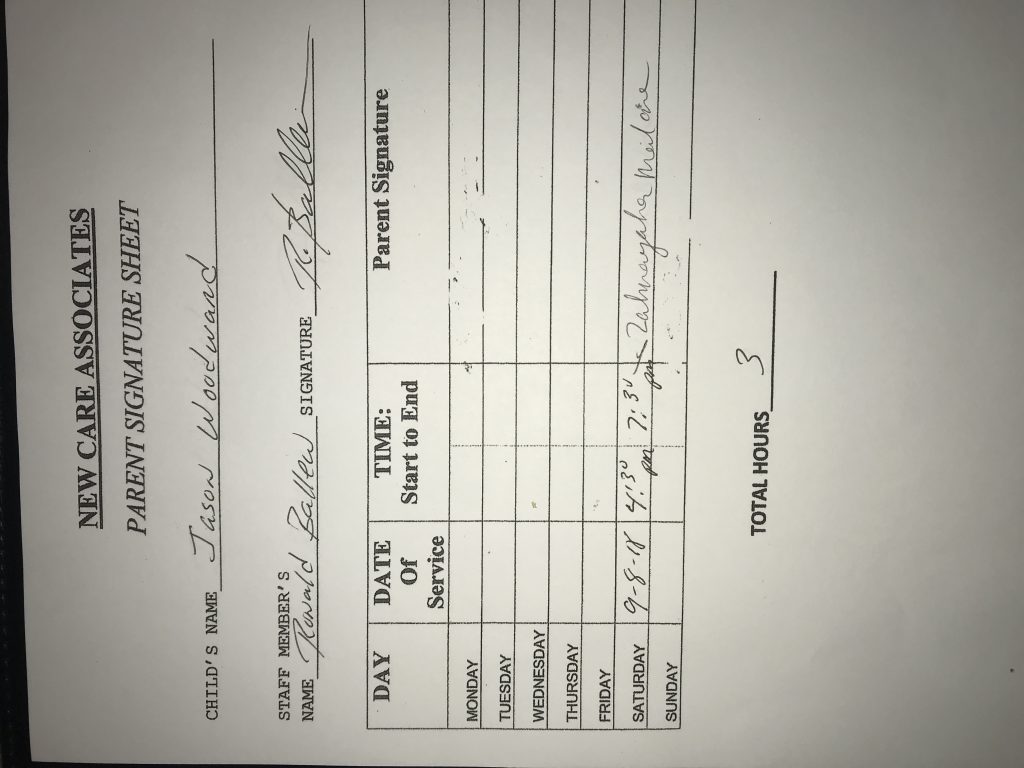 NEW CARE ASSOCIATES
PARENT SIGNATURE SHEET
CHILD'S NAME Jason Woodward
STAFF MEMBER'S
NAME Ronald Ballew SIGNATURE R. Ballew
DAY DATE Of Service TIME: Start to End Parent Signature
MONDAY
TUESDAY
WEDNESDAY
THURSDAY
FRIDAY
SATURDAY 9-8-18 4:30 pm 7:30 pm
SUNDAY
TOTAL HOURS 3